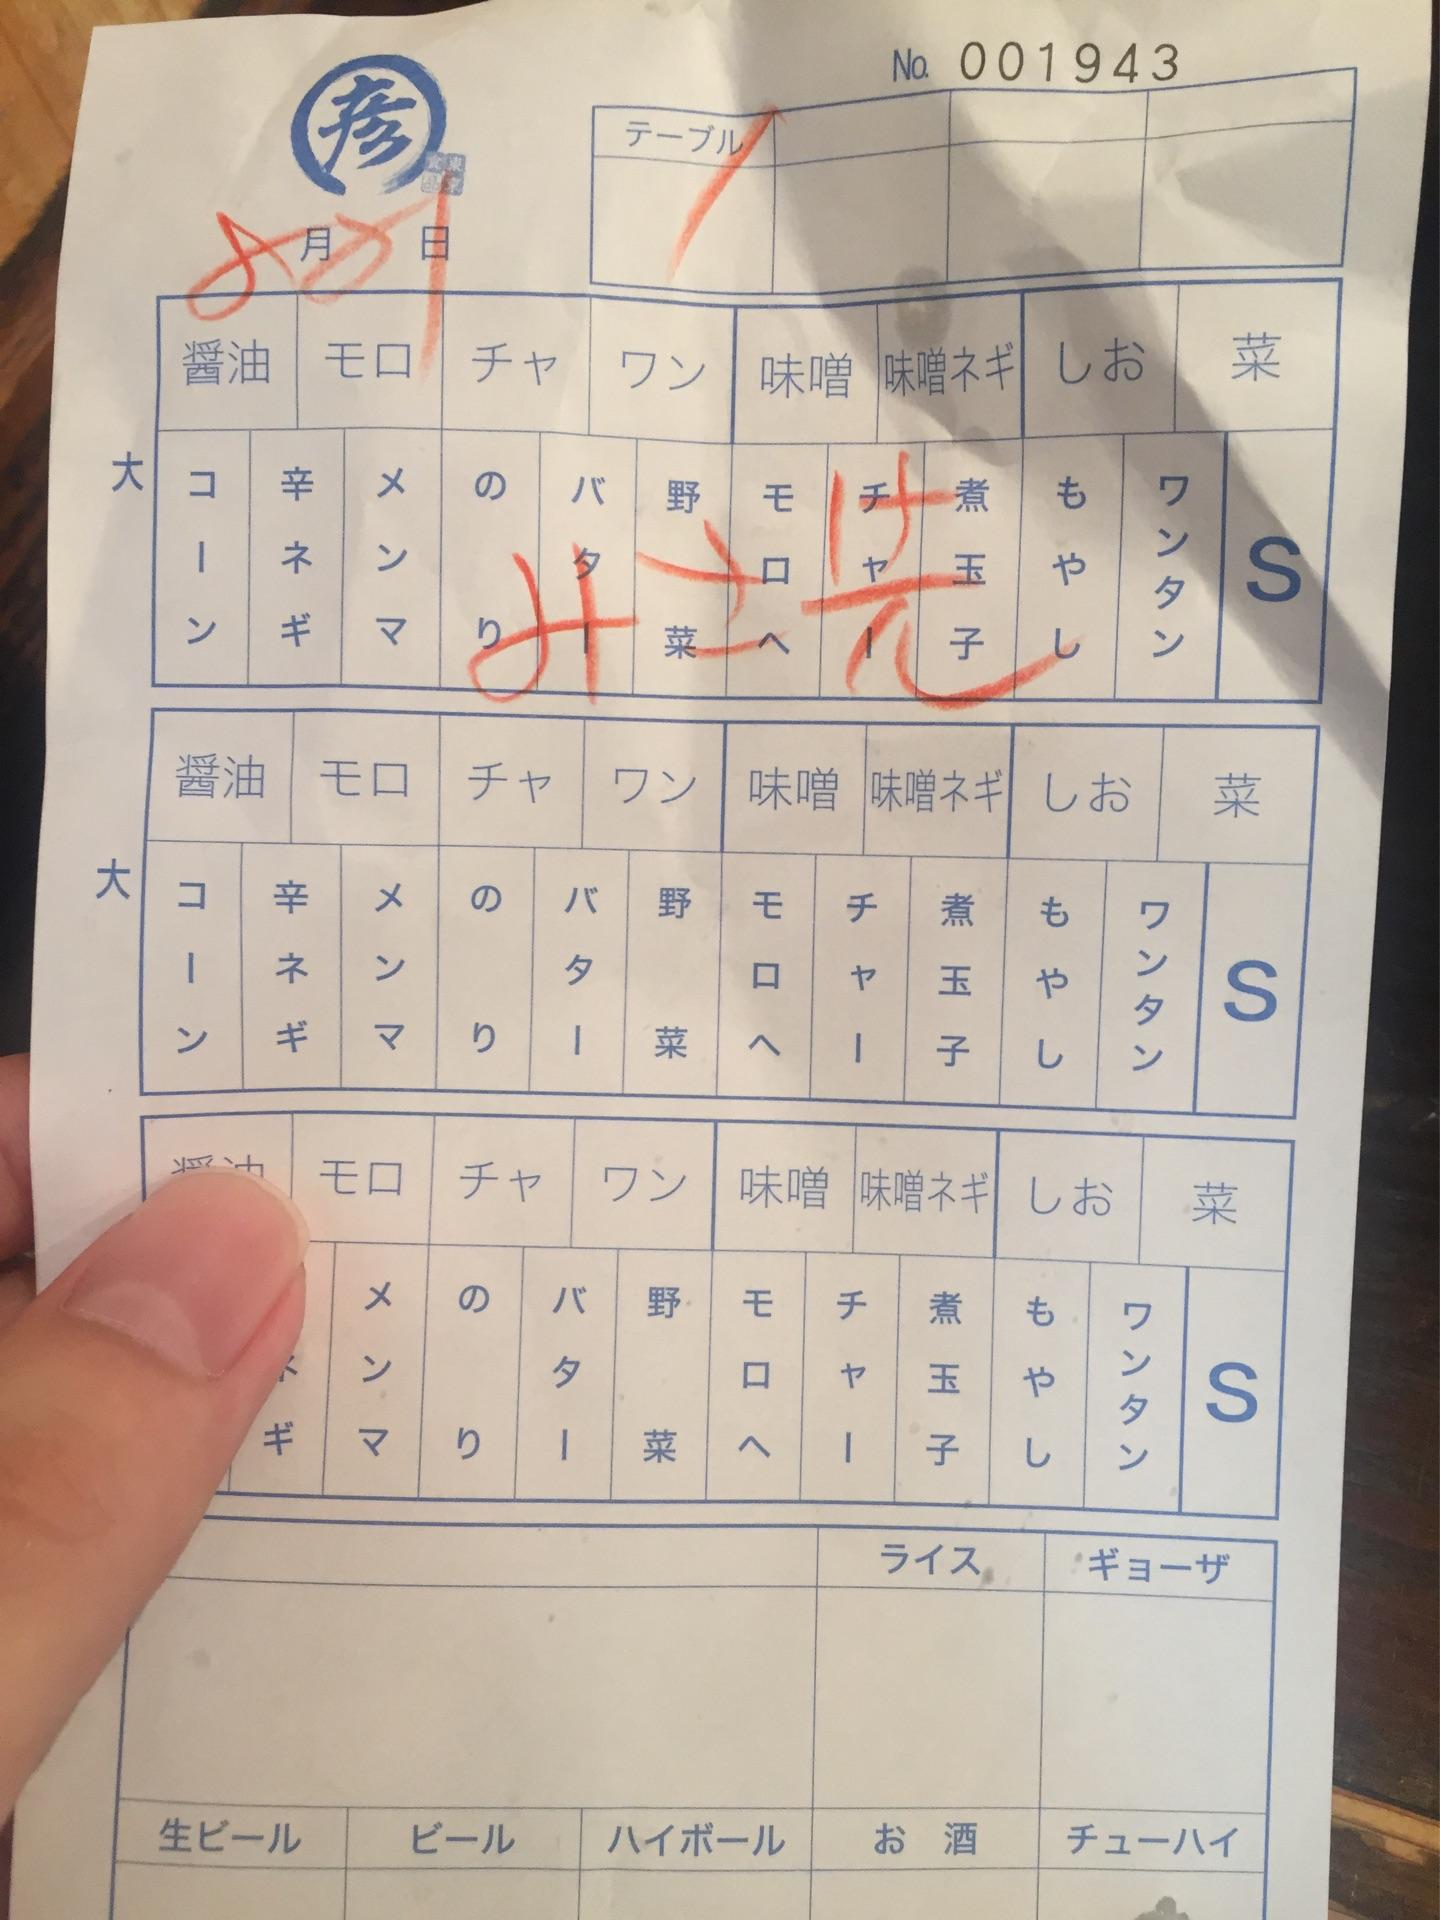 No. 001943
彦
テーブル
1
月 日
醤油 モロ チャ ワン 味噌 味噌ネギ しお 菜
大
コーン 辛ネギ メンマ のり バター 野菜 モロヘ チャー 煮玉子 もやし ワンタン S
醤油 モロ チャ ワン 味噌 味噌ネギ しお 菜
大
コーン 辛ネギ メンマ のり バター 野菜 モロヘ チャー 煮玉子 もやし ワンタン S
醤油 モロ チャ ワン 味噌 味噌ネギ しお 菜
ネギ メンマ のり バター 野菜 モロヘ チャー 煮玉子 もやし ワンタン S
ライス ギョーザ
生ビール ビール ハイボール お酒 チューハイ